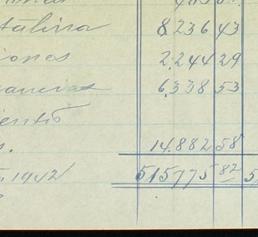 talina 8.236 43
iones 2.244 29
ancias 6.338 53
iento
s. 14.882 58
1942 515775 82 5